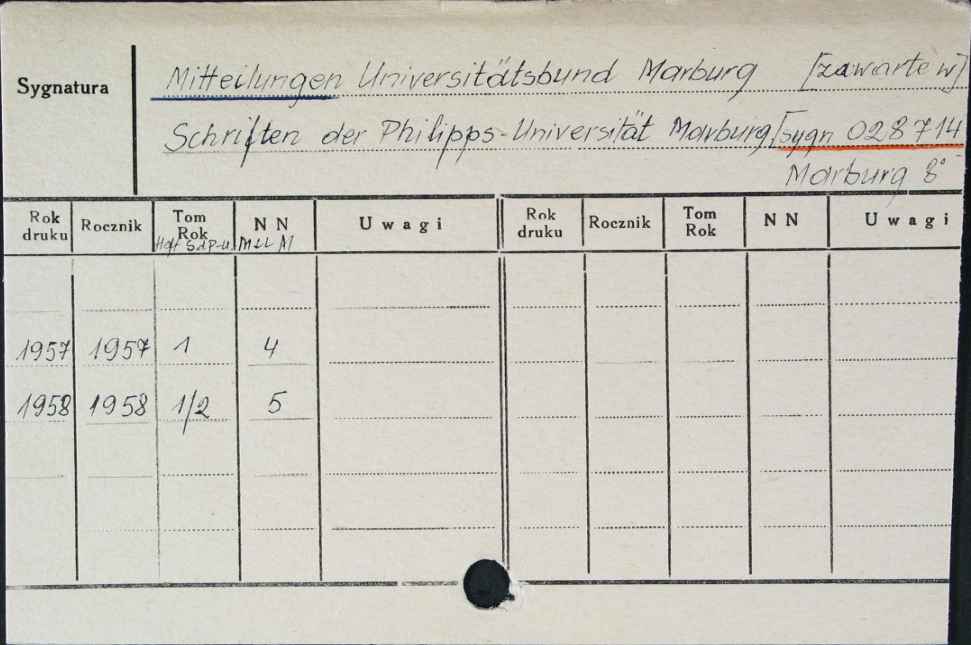 Sygnatura
Mitteilungen Universitätsbund Marburg [zawarte w]
Schriften der Philipps-Universität Marburg [sygn 028714
Marburg 8°
Rok druku Rocznik Tom Rok NN Uwagi Rok druku Rocznik Tom Rok NN Uwagi
1957 1957 1 4
1958 1958 1/2 5